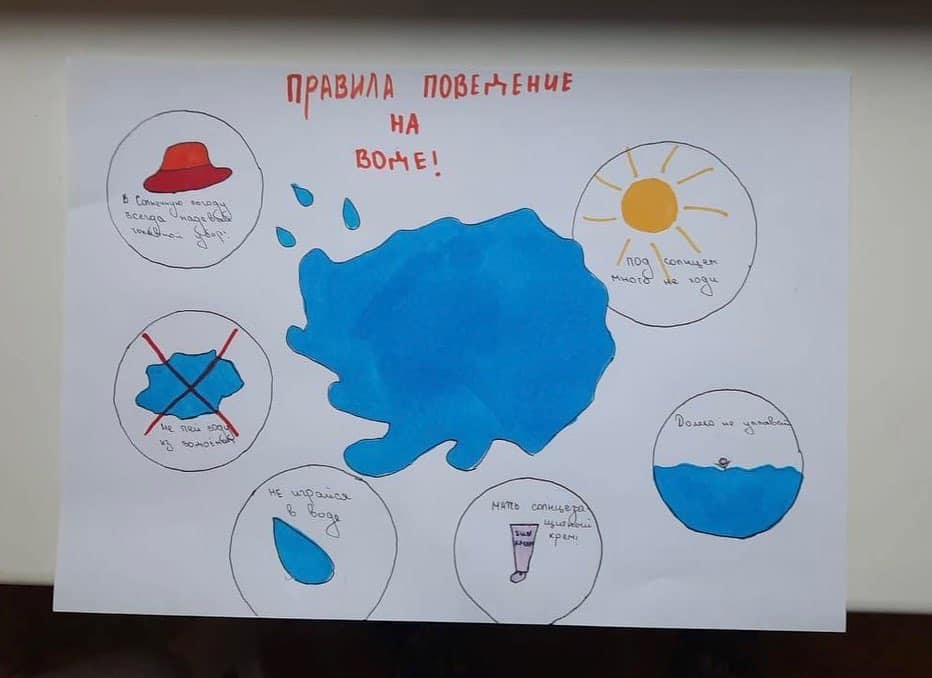 ПРАВИЛА ПОВЕДЕНИЕ
НА
ВОДЕ!
В Солнечную погоду
всегда надевай
головной убор!
под солнцем
много не ходи
Не пей воду
из
Далеко не уплавай
не играйся
в воде
мать солнцеза
щитный
крем!
SUN